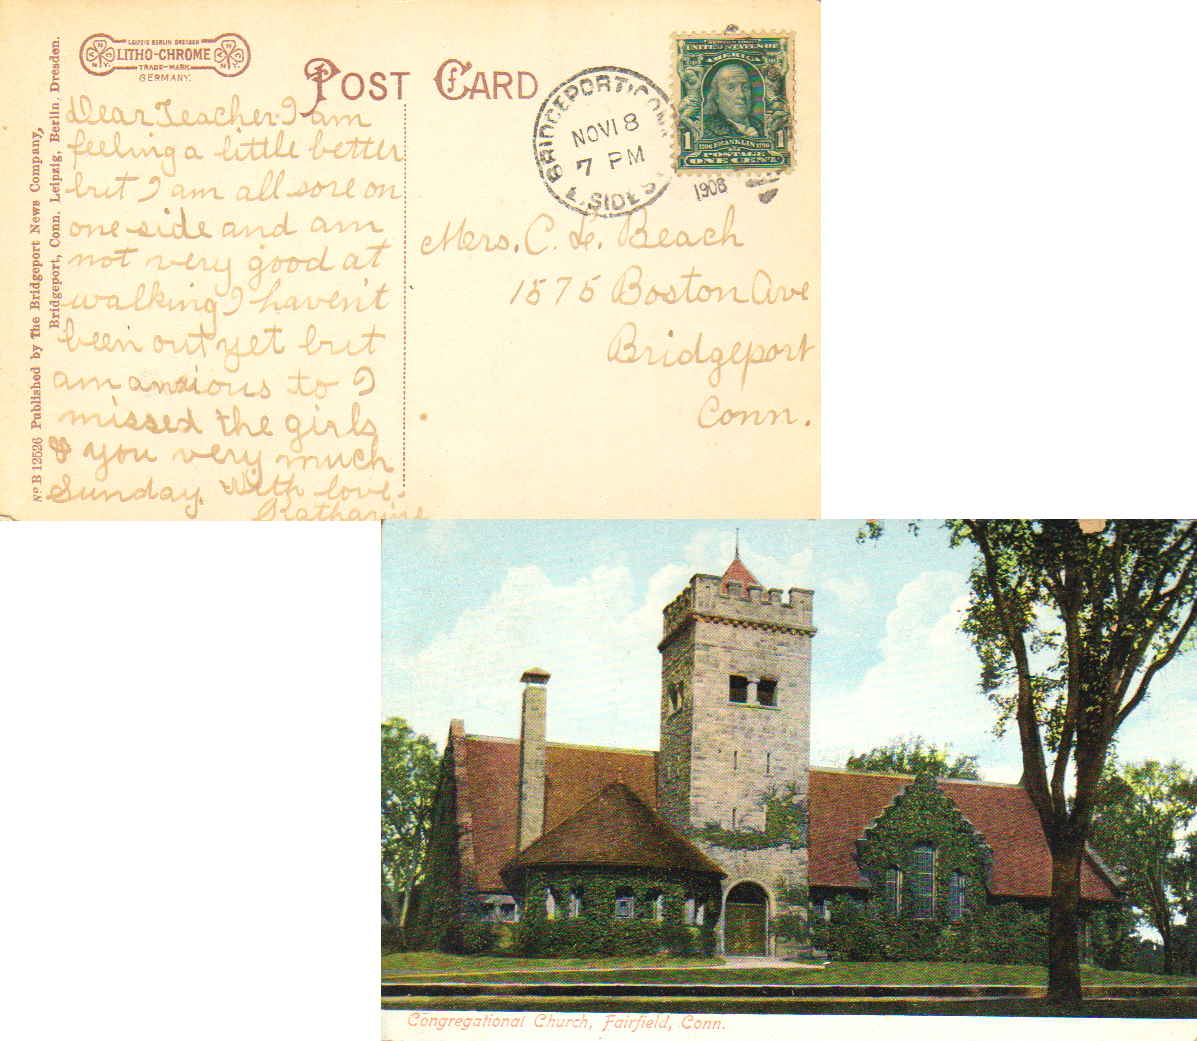 LEIPZIG BERLIN DRESDEN
LITHO-CHROME
TRADE-MARK
GERMANY.
POST CARD
Nº B 12526 Published by The Bridgeport News Company,
Bridgeport, Conn. Leipzig, Berlin, Dresden.
BRIDGEPORT, CONN.
NOV 18
7 PM
E. SIDE S.
1908
UNITED STATES OF
AMERICA
1 FRANKLIN 1
POSTAGE
ONE CENT
Dear Teacher. I am
feeling a little better
but I am all sore on
one side and am
not very good at
walking I haven't
been out yet but
am anxious to I
missed the girls
& you very much
Sunday. With love.
Katharine
Mrs. C. L. Beach
1575 Boston Ave
Bridgeport
Conn.
Congregational Church, Fairfield, Conn.